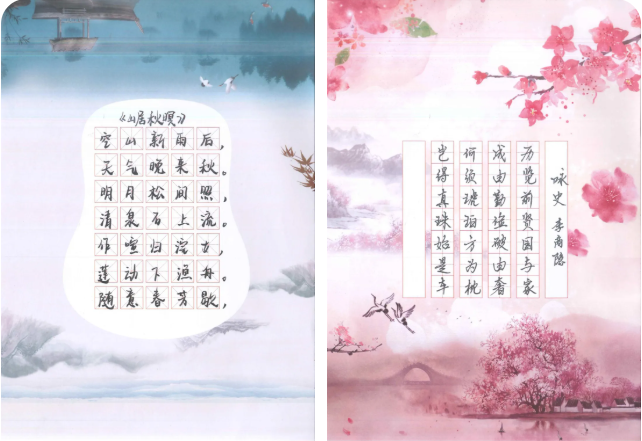 《山居秋暝》
空山新雨后，
天气晚来秋。
明月松间照，
清泉石上流。
竹喧归浣女，
莲动下渔舟。
随意春芳歇，
咏史 李商隐
历览前贤国与家
成由勤俭破由奢
何须琥珀方为枕
岂得真珠始是车